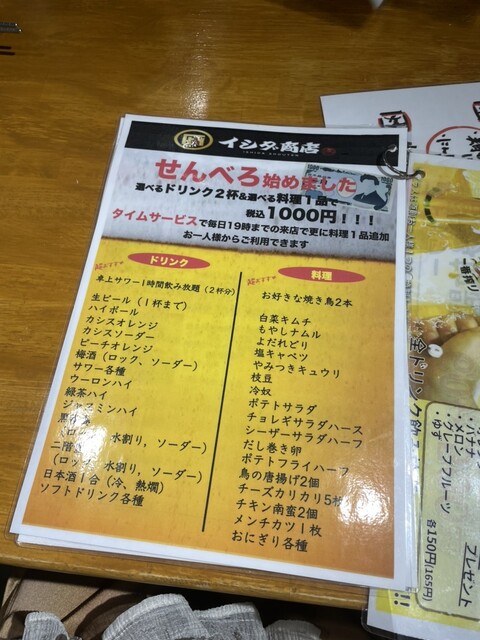 イシダ商店
ISHIDA SHOUTEN
せんべろ始めました
選べるドリンク2杯&選べる料理1品で
税込1000円!!!
タイムサービスで毎日19時までの来店で更に料理1品追加
お一人様からご利用できます
ドリンク
卓上サワー1時間飲み放題(2杯分)
生ビール(1杯まで)
ハイボール
カシスオレンジ
カシスソーダー
ピーチオレンジ
梅酒(ロック、ソーダー)
サワー各種
ウーロンハイ
緑茶ハイ
ジャスミンハイ
黒
水割り,ソーダー)
二階
(ロック 水割り,ソーダー)
日本酒1合(冷、熱燗)
ソフトドリンク各種
料理
お好きな焼き鳥2本
白菜キムチ
もやしナムル
よだれどり
塩キャベツ
やみつきキュウリ
枝豆
冷奴
ポテトサラダ
チョレギサラダハース
シーザーサラダハーフ
だし巻き卵
ポテトフライハーフ
鳥の唐揚げ2個
チーズカリカリ5枚
チキン南蛮2個
メンチカツ1枚
おにぎり各種
一番搾り
全ドリンク飲
バナナ
メロン
グレープフルーツ
ゆず
各150円(165円)
プレゼント
!!